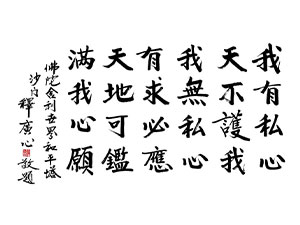 我有私心
天不護我
我無私心
有求必應
天地可鑑
滿我心願
佛陀舍利世界和平塔
沙門釋廣心敬題